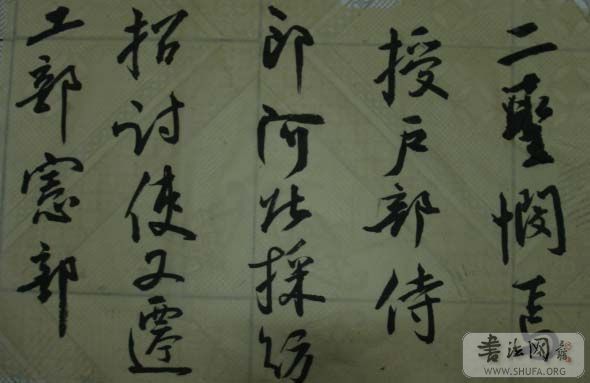 二聖憫焉
授户部侍
郎河北採訪
招討使又遷
工部憲部
書法网
WWW.SHUFA.ORG